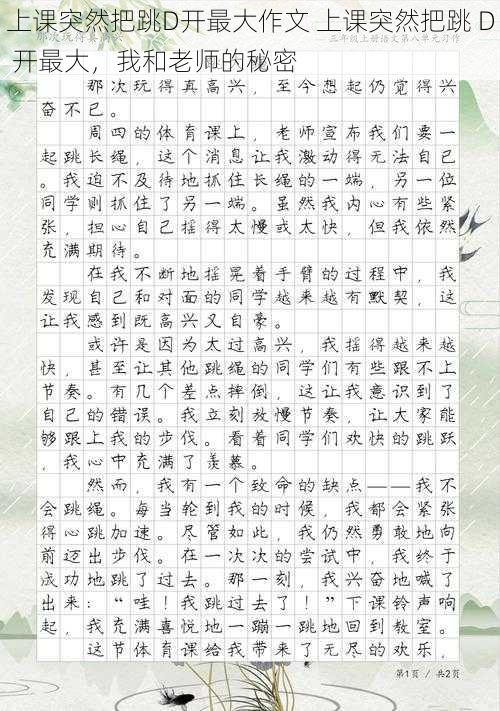 上课突然把跳D开最大作文 上课突然把跳 D
开最大，我和老师的秘密
三年级上册语文第八单元习作
那次玩得真高兴，至今想起仍觉得兴
奋不已。
周四的体育课上，老师宣布我们要一
起跳长绳，这个消息让我激动得无法自己
。我迫不及待地抓住长绳的一端，另一位
同学则抓住了另一端。虽然我内心有些紧
张，担心自己摇得太慢或太快，但我依然
充满期待。
在我不断地摇晃着手臂的过程中，我
发现自己和对面的同学越来越有默契，这
让我感到既高兴又自豪。
或许是因为太过高兴，我摇得越来越
快，甚至让其他跳绳的同学们有些跟不上
节奏。有几个差点摔倒，这让我意识到了
自己的错误。我立刻放慢节奏，让大家能
够跟上我的步伐。看着同学们欢快的跳跃
，我心中充满了羡慕。
然而，我有一个致命的缺点——我不
会跳绳。每当轮到我的时候，我都会紧张
得心跳加速。尽管如此，我仍然勇敢地向
前迈出步伐。在一次次的尝试中，我终于
成功地跳了过去。那一刻，我兴奋地喊了
出来：“哇！我跳过去了！”下课铃声响
起，我充满喜悦地一蹦一跳地回到教室。
这节体育课给我带来了无尽的欢乐，
第1页 / 共2页